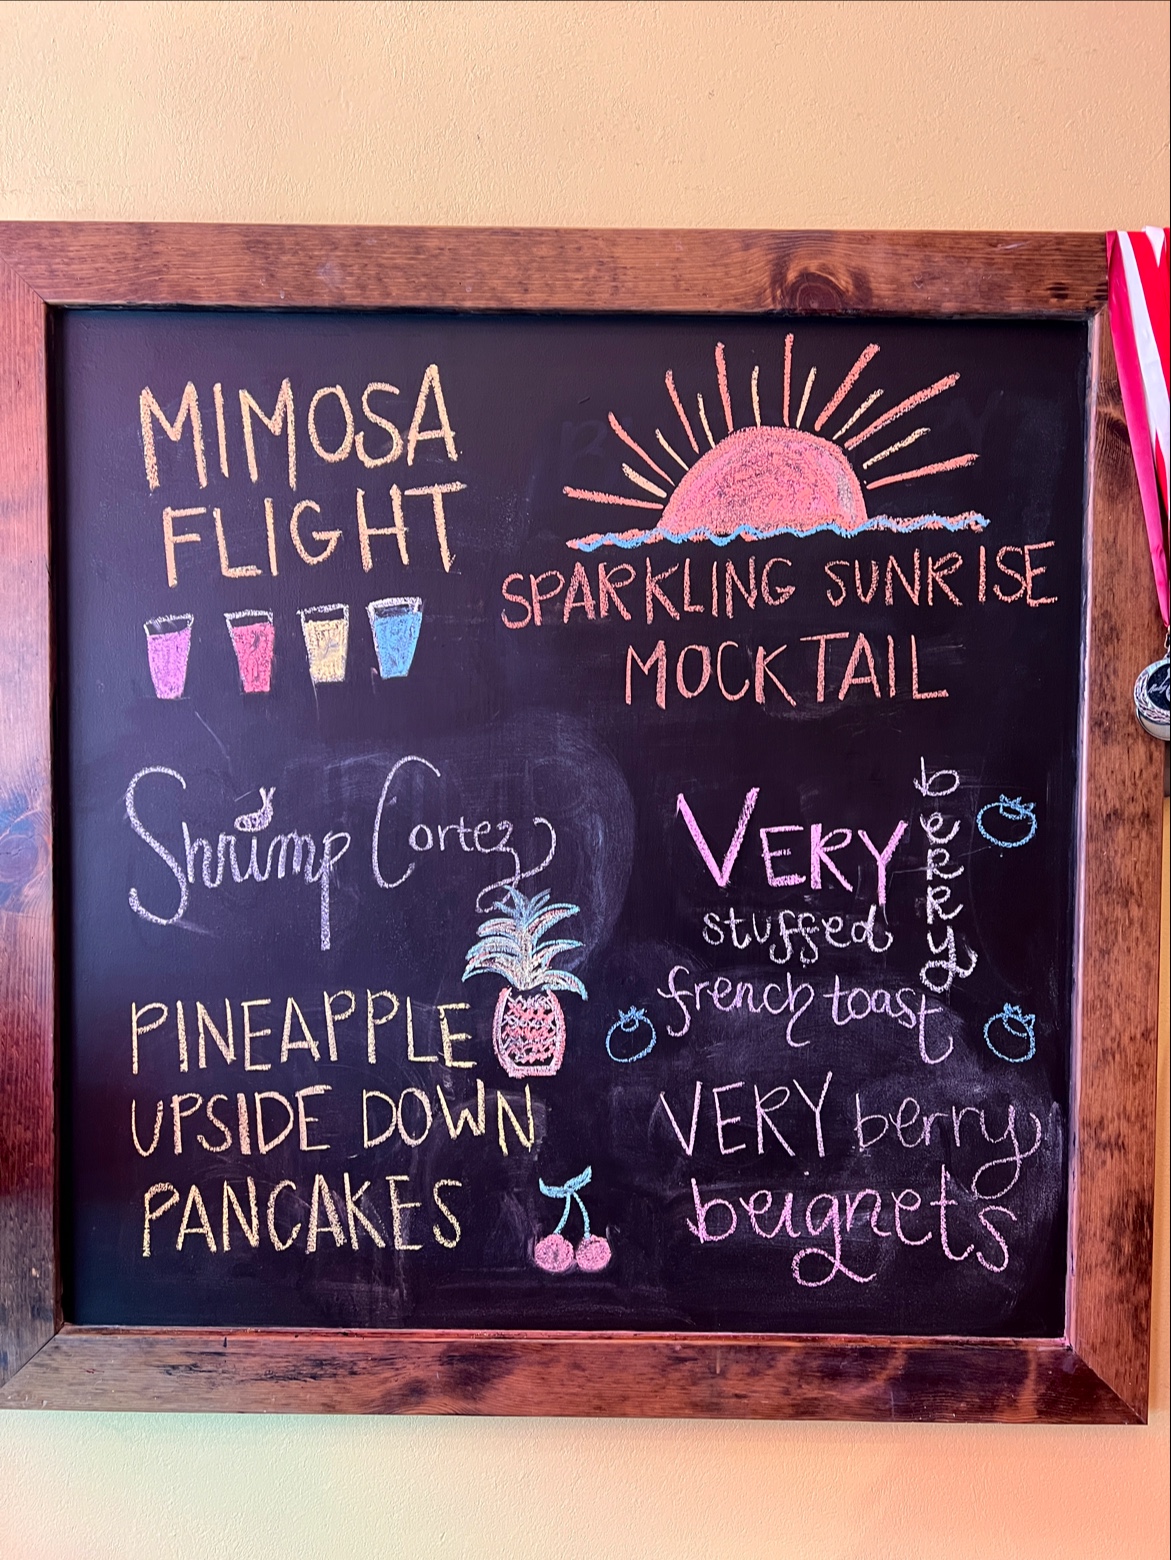 MIMOSA
FLIGHT
SPARKLING SUNRISE
MOCKTAIL
Shrimp Cortez
PINEAPPLE
UPSIDE DOWN
PANCAKES
VERY
berry
stuffed
french toast
VERY berry
beignets